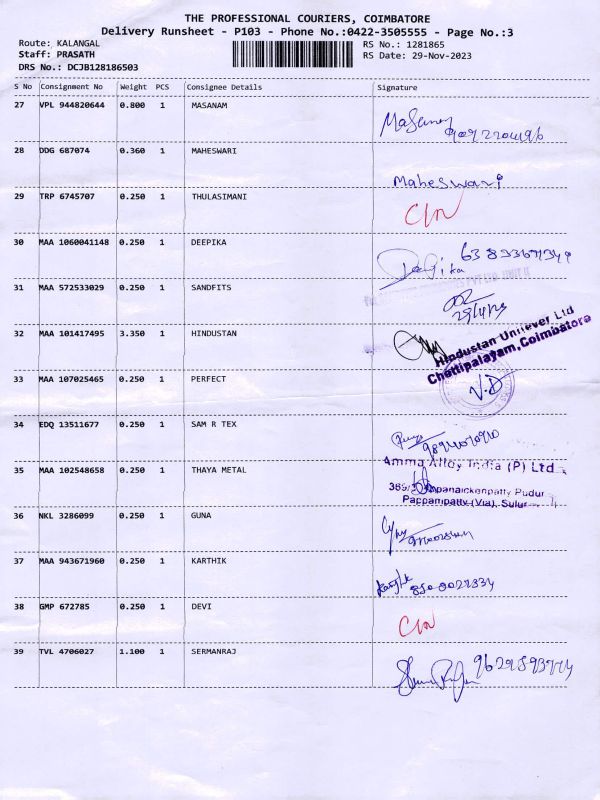 THE PROFESSIONAL COURIERS, COIMBATORE
Delivery Runsheet - P103 - Phone No.:0422-3505555 - Page No.:3
Route: KALANGAL RS No.: 1281865
Staff: PRASATH RS Date: 29-Nov-2023
DRS No.: DCJB128186503
S No Consignment No Weight PCS Consignee Details Signature
27 VPL 944820644 0.800 1 MASANAM
Masanam
28 DDG 687074 0.360 1 MAHESWARI
Maheswari
29 TRP 6745707 0.250 1 THULASIMANI
30 MAA 1060041148 0.250 1 DEEPIKA
31 MAA 572533029 0.250 1 SANDFITS
32 MAA 101417495 3.350 1 HINDUSTAN
Hindustan Unilever Ltd
Chettipalayam, Coimbatore
33 MAA 107025465 0.250 1 PERFECT
V.D
34 EDQ 13511677 0.250 1 SAM R TEX
35 MAA 102548658 0.250 1 THAYA METAL
Amma Alloy India (P) Ltd
Pudur
Pappampatty (Via), Sulur
36 NKL 3286099 0.250 1 GUNA
37 MAA 943671960 0.250 1 KARTHIK
38 GMP 672785 0.250 1 DEVI
39 TVL 4706027 1.100 1 SERMANRAJ